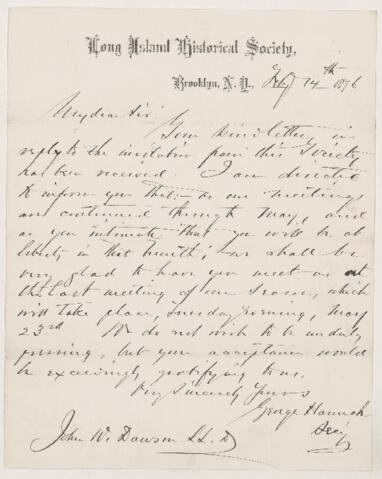 Long Island Historical Society,
Brooklyn, N. Y., 14th 1876
My dear Sir:
Your kind letter, in
reply to the invitation from this Society
has been received. I am directed
to inform you that as our meetings
are continued through May, and
as you intimate that you will be at
liberty in that month; we shall be
very glad to have you meet us at
the last meeting of our season, which
will take place, Tuesday evening, May
23rd We do not wish to be unduly
pressing, but your acceptance would
be exceedingly gratifying to us.
Very Sincerely Yours
George Hannah
Secy
John W. Dawson LL.D